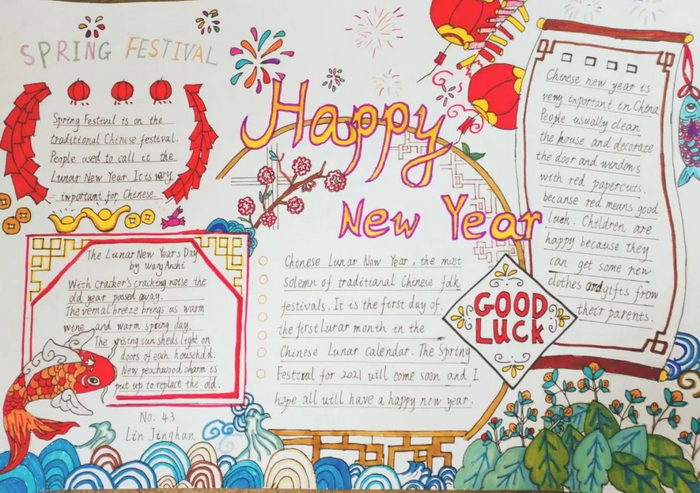 SPRING FESTIVAL
Spring Festival is on the
traditional Chinese festival.
People used to call it the
Lunar New Year. It is very
important for Chinese.
Happy
New Year
Chinese new year is
very important in China
People usually clean
the house and decorate
the door and windows
with red papercuts.
because red means good
luck. Children are
happy because they
can get some new
clothes and gifts from
their parents.
The Lunar New Year's Day
by Wang Anshi
With Cracker's cracking noise the
old year passed away.
The vernal breeze brings us warm
wine and warm spring day.
The rising sun sheds light on
doors of each househld.
New peachwood charm is
put up to replace the old.
No. 43
Lin Jinghan
Chinese Lunar Now Year, the most
solemn of traditional Chinese folk
festivals. It is the first day of
the first lunar month in the
Chinese Lunar calendar. The Spring
Festival for 2021 will come soon and I
hope all will have a happy new year.
GOOD
LUCK